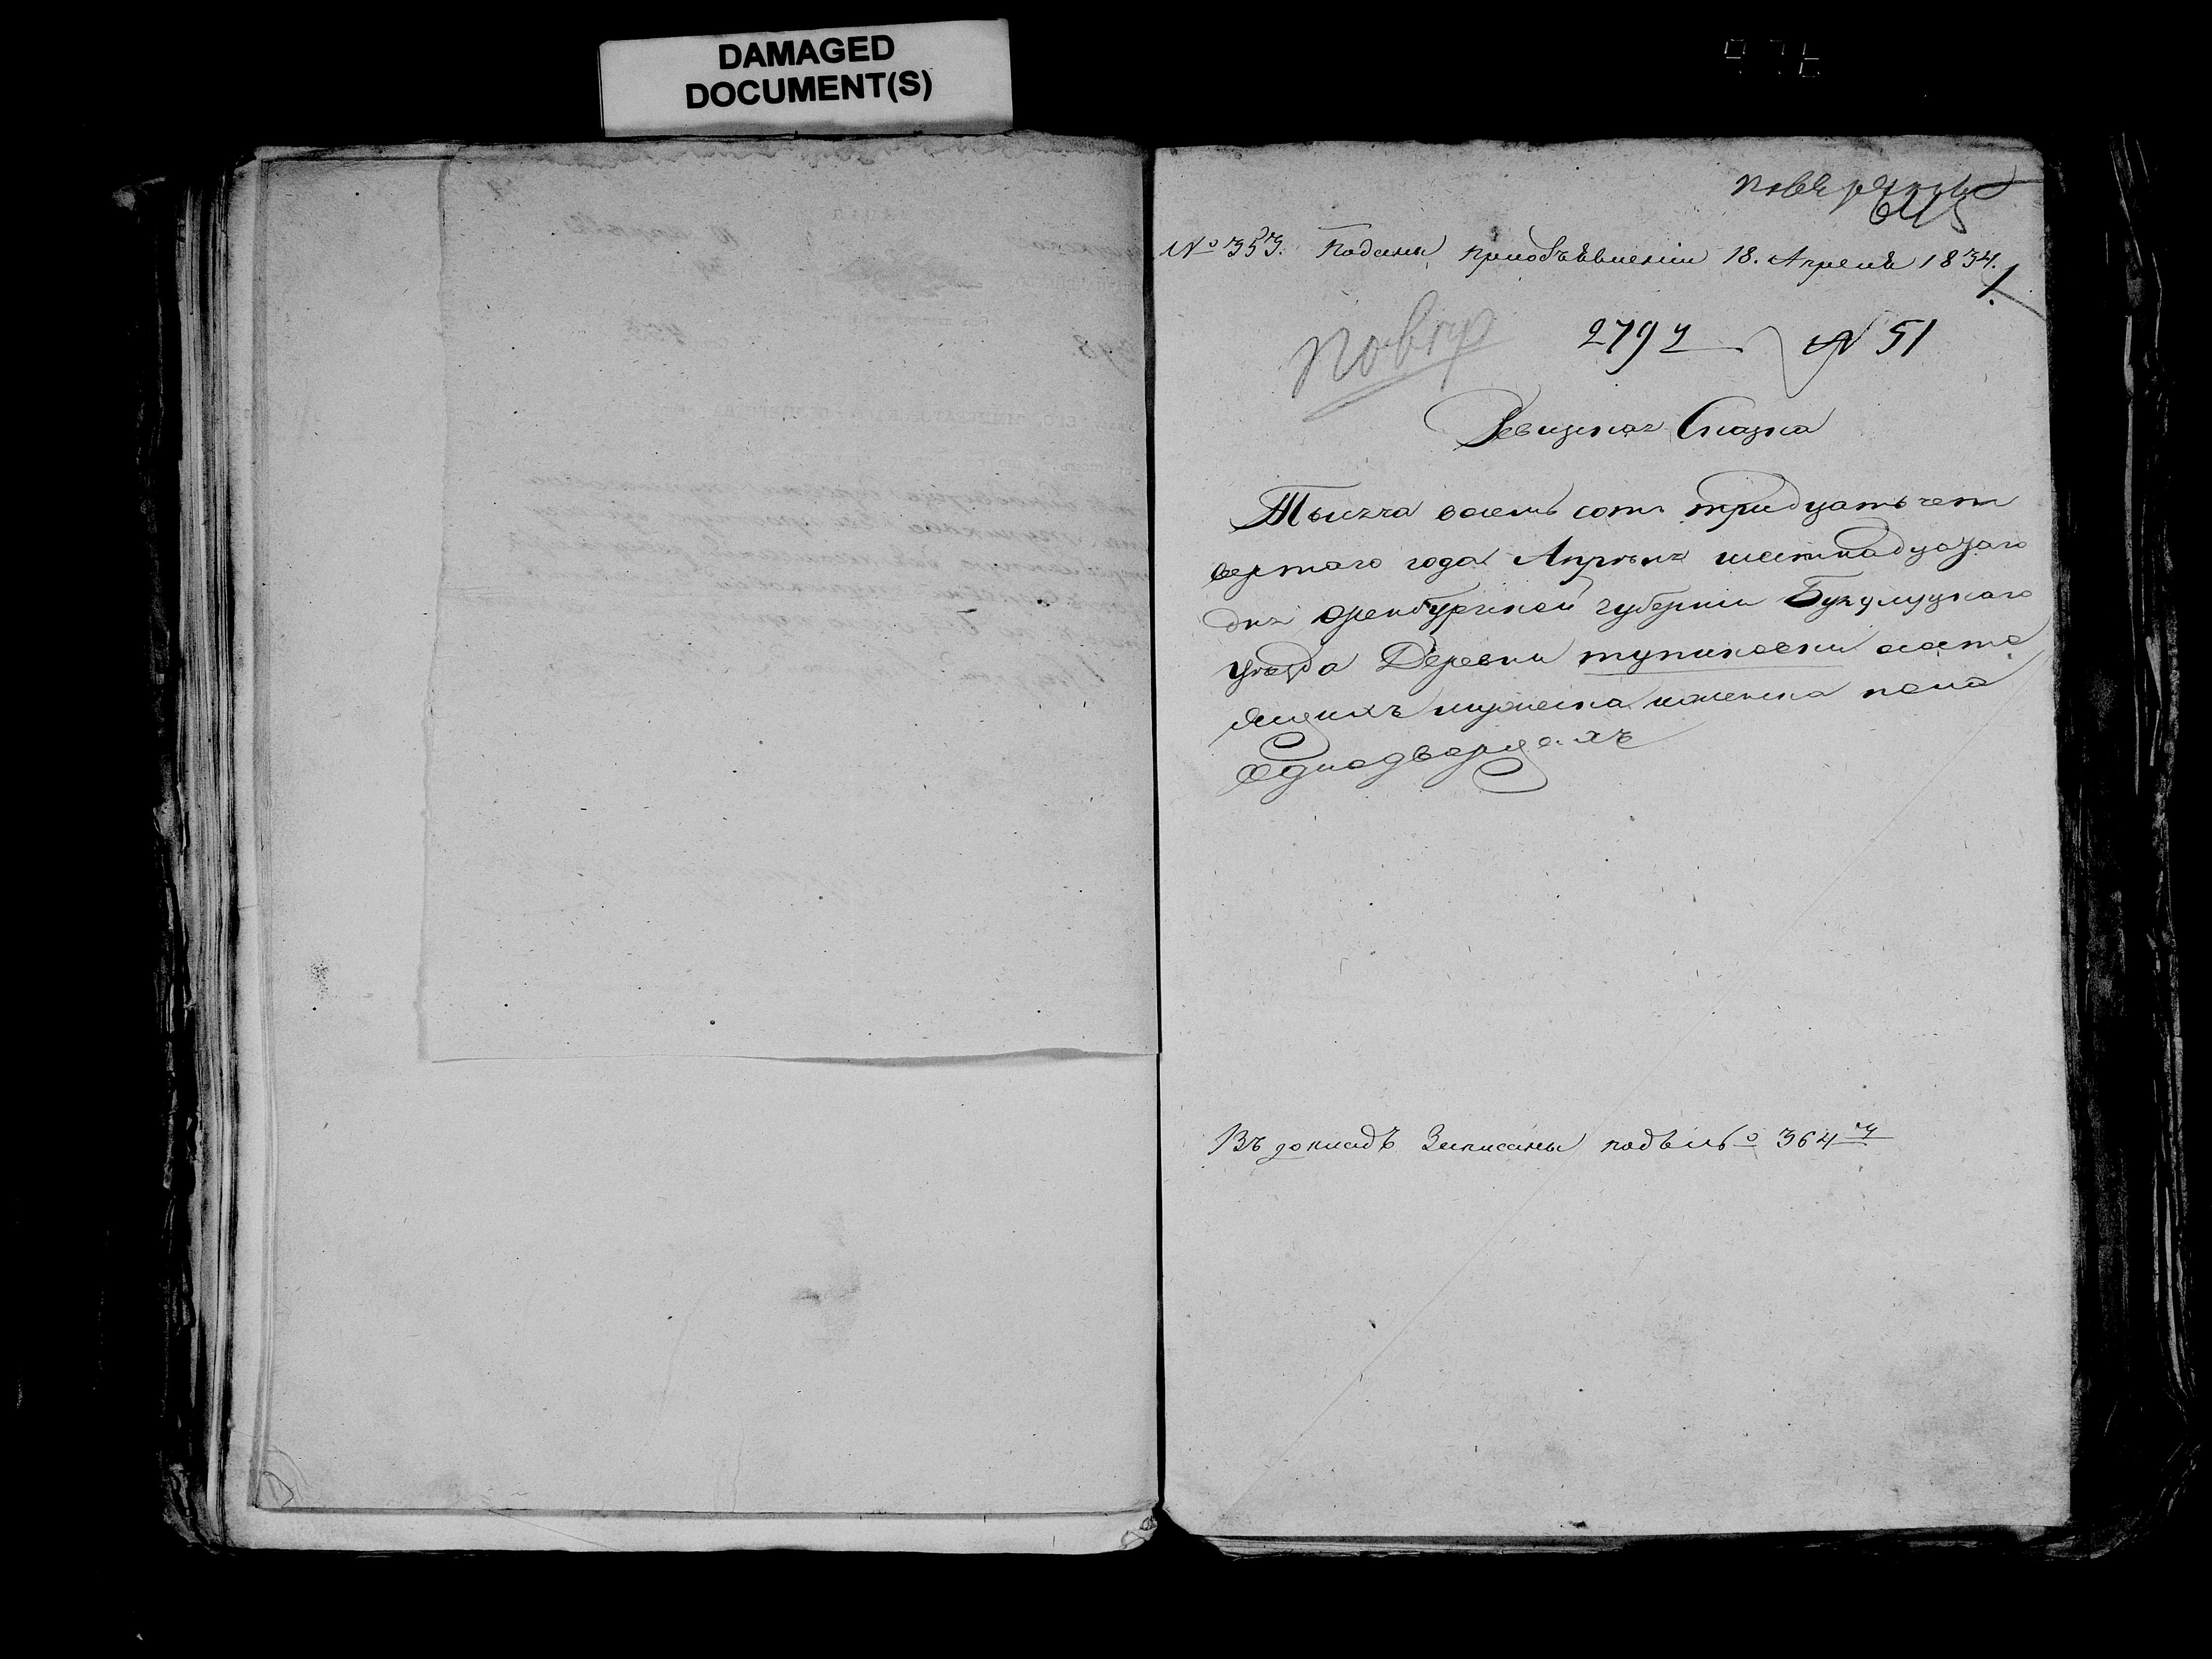 DAMAGED
DOCUMENT(S)
№ 353. Поданы приобъявленіи 18. Апреля 1834.
повер
2797 № 51
Ревизская Сказка
Тысяча восемь сотъ тридцать чет
вертаго года Апрѣля шестнадцатаго
дня Оренбургской губерніи Бузулуцкаго
уѣзда Деревни тупиковки ососто
ящихъ мужеска иженска пола
Однодворцахъ
Въ докладѣ Записаны подъ № 364